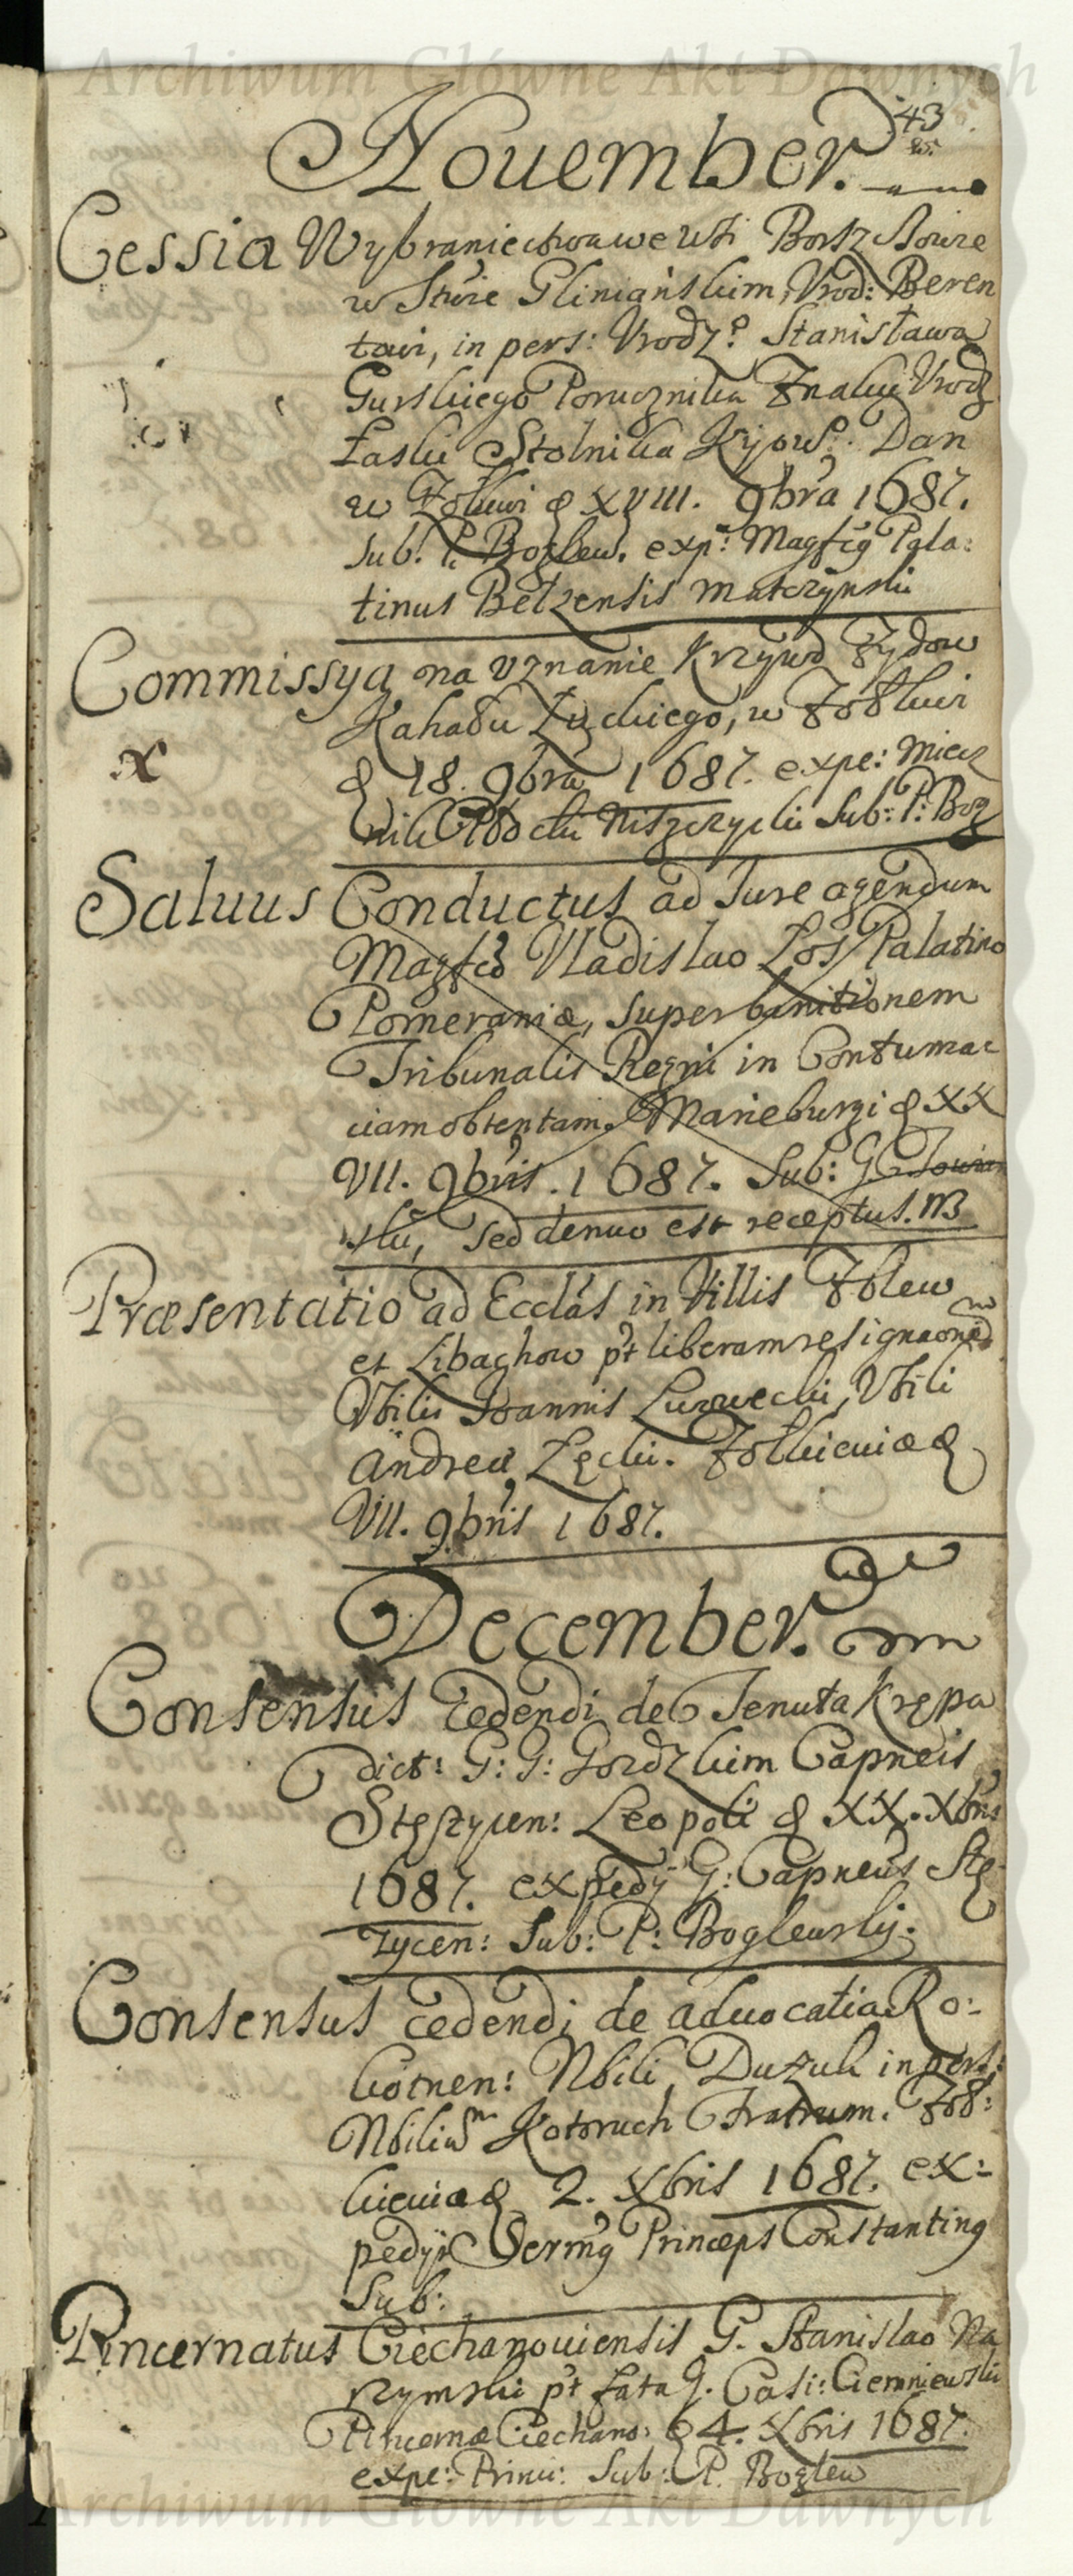 Archiwum Główne Akt Dawnych
43
Nouember.
Cessia Wybraniectwa we wsi Borszczowie
w Stwie Gliniańskim, Vrod: Beren
towi, in pers: Vrodz° Stanisława
Gurskiego Porucznika Znaku Vrodz
Łaski Stolnika Kijows°. Dan
w Żołkwi d XVIII. 9bra 1687.
Sub. P. Boglew. exp: Magfcg Pala:
tinus Belzensis Matczynski
Commissya na vznanie Krzywd Żydow
Kahału Łuckiego, w Żołkwi
d 18. 9bra 1687. expe: Miecz
nik Płocki Niszczycki Sub: P: Bog
Saluus Conductus ad Iure agendum
Magfco Vladislao Łos Palatino
Pomeraniæ, super banitionem
Tribunalis Regni in Contumac
iam obtentam. Marieburgi d XX
VII. 9bris. 1687. Sub: G
ski, sed denuo est receptus. MB
Præsentatio ad Ecclas in Villis
et Libachow pt liberam resignaonem
Nbilis Ioannis Nbili
Andreæ Łęcki. Żołkieuiæ d
VII. 9bris 1687.
December.
Consensus Cedendi de Tenuta Krępa
dict: G: G: Gordzkim Capneis
Stęszycen: Leopoli d XX. Xbris
1687. expedy G: Capneus Stę
zycen: Sub: P: Boglewsky.
Consensus cedendi de aduocatia Ro:
kitnen: Nbili in pers:
Nbilium Kotoruch Fratrum. Żoł:
kieuiæ d 2. Xbris 1687. ex:
pedyt Sermg Princeps Constanting
Sub:
Pincernatus Ciechanouiensis G. Stanislao Na
rzymski pt fata G. Casi: Ciemniewski
Pincernæ Ciechano: d 4. Xbris 1687.
expe: Princ: Sub: P. Boglew
Archiwum Główne Akt Dawnych